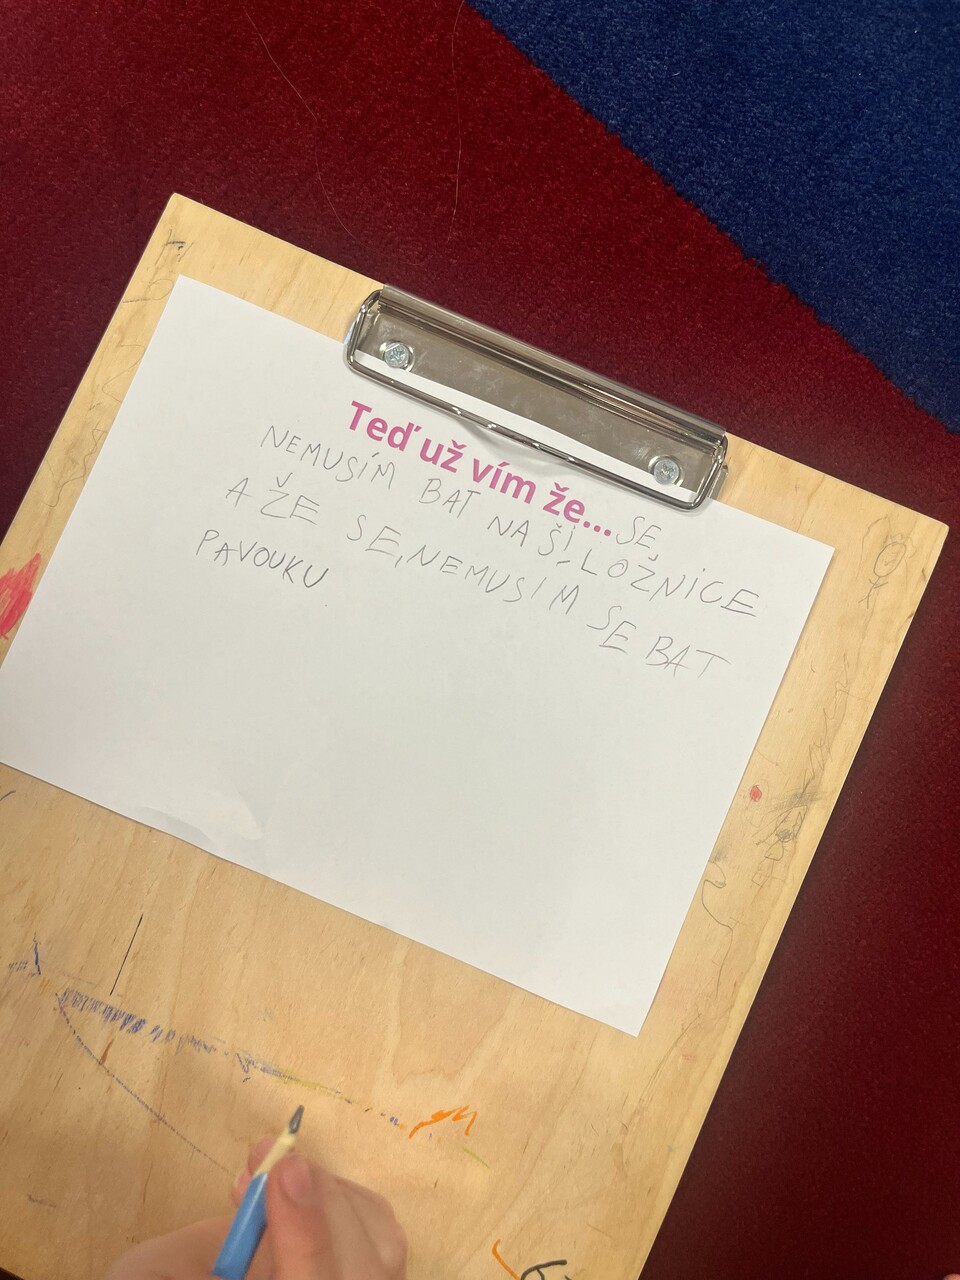 Teď už vím že... SE,
NEMUSÍM BAT NA ŠÍ LOŽNICE
A ŽE SE, NEMUSÍM SE BAT
PAVOUKU